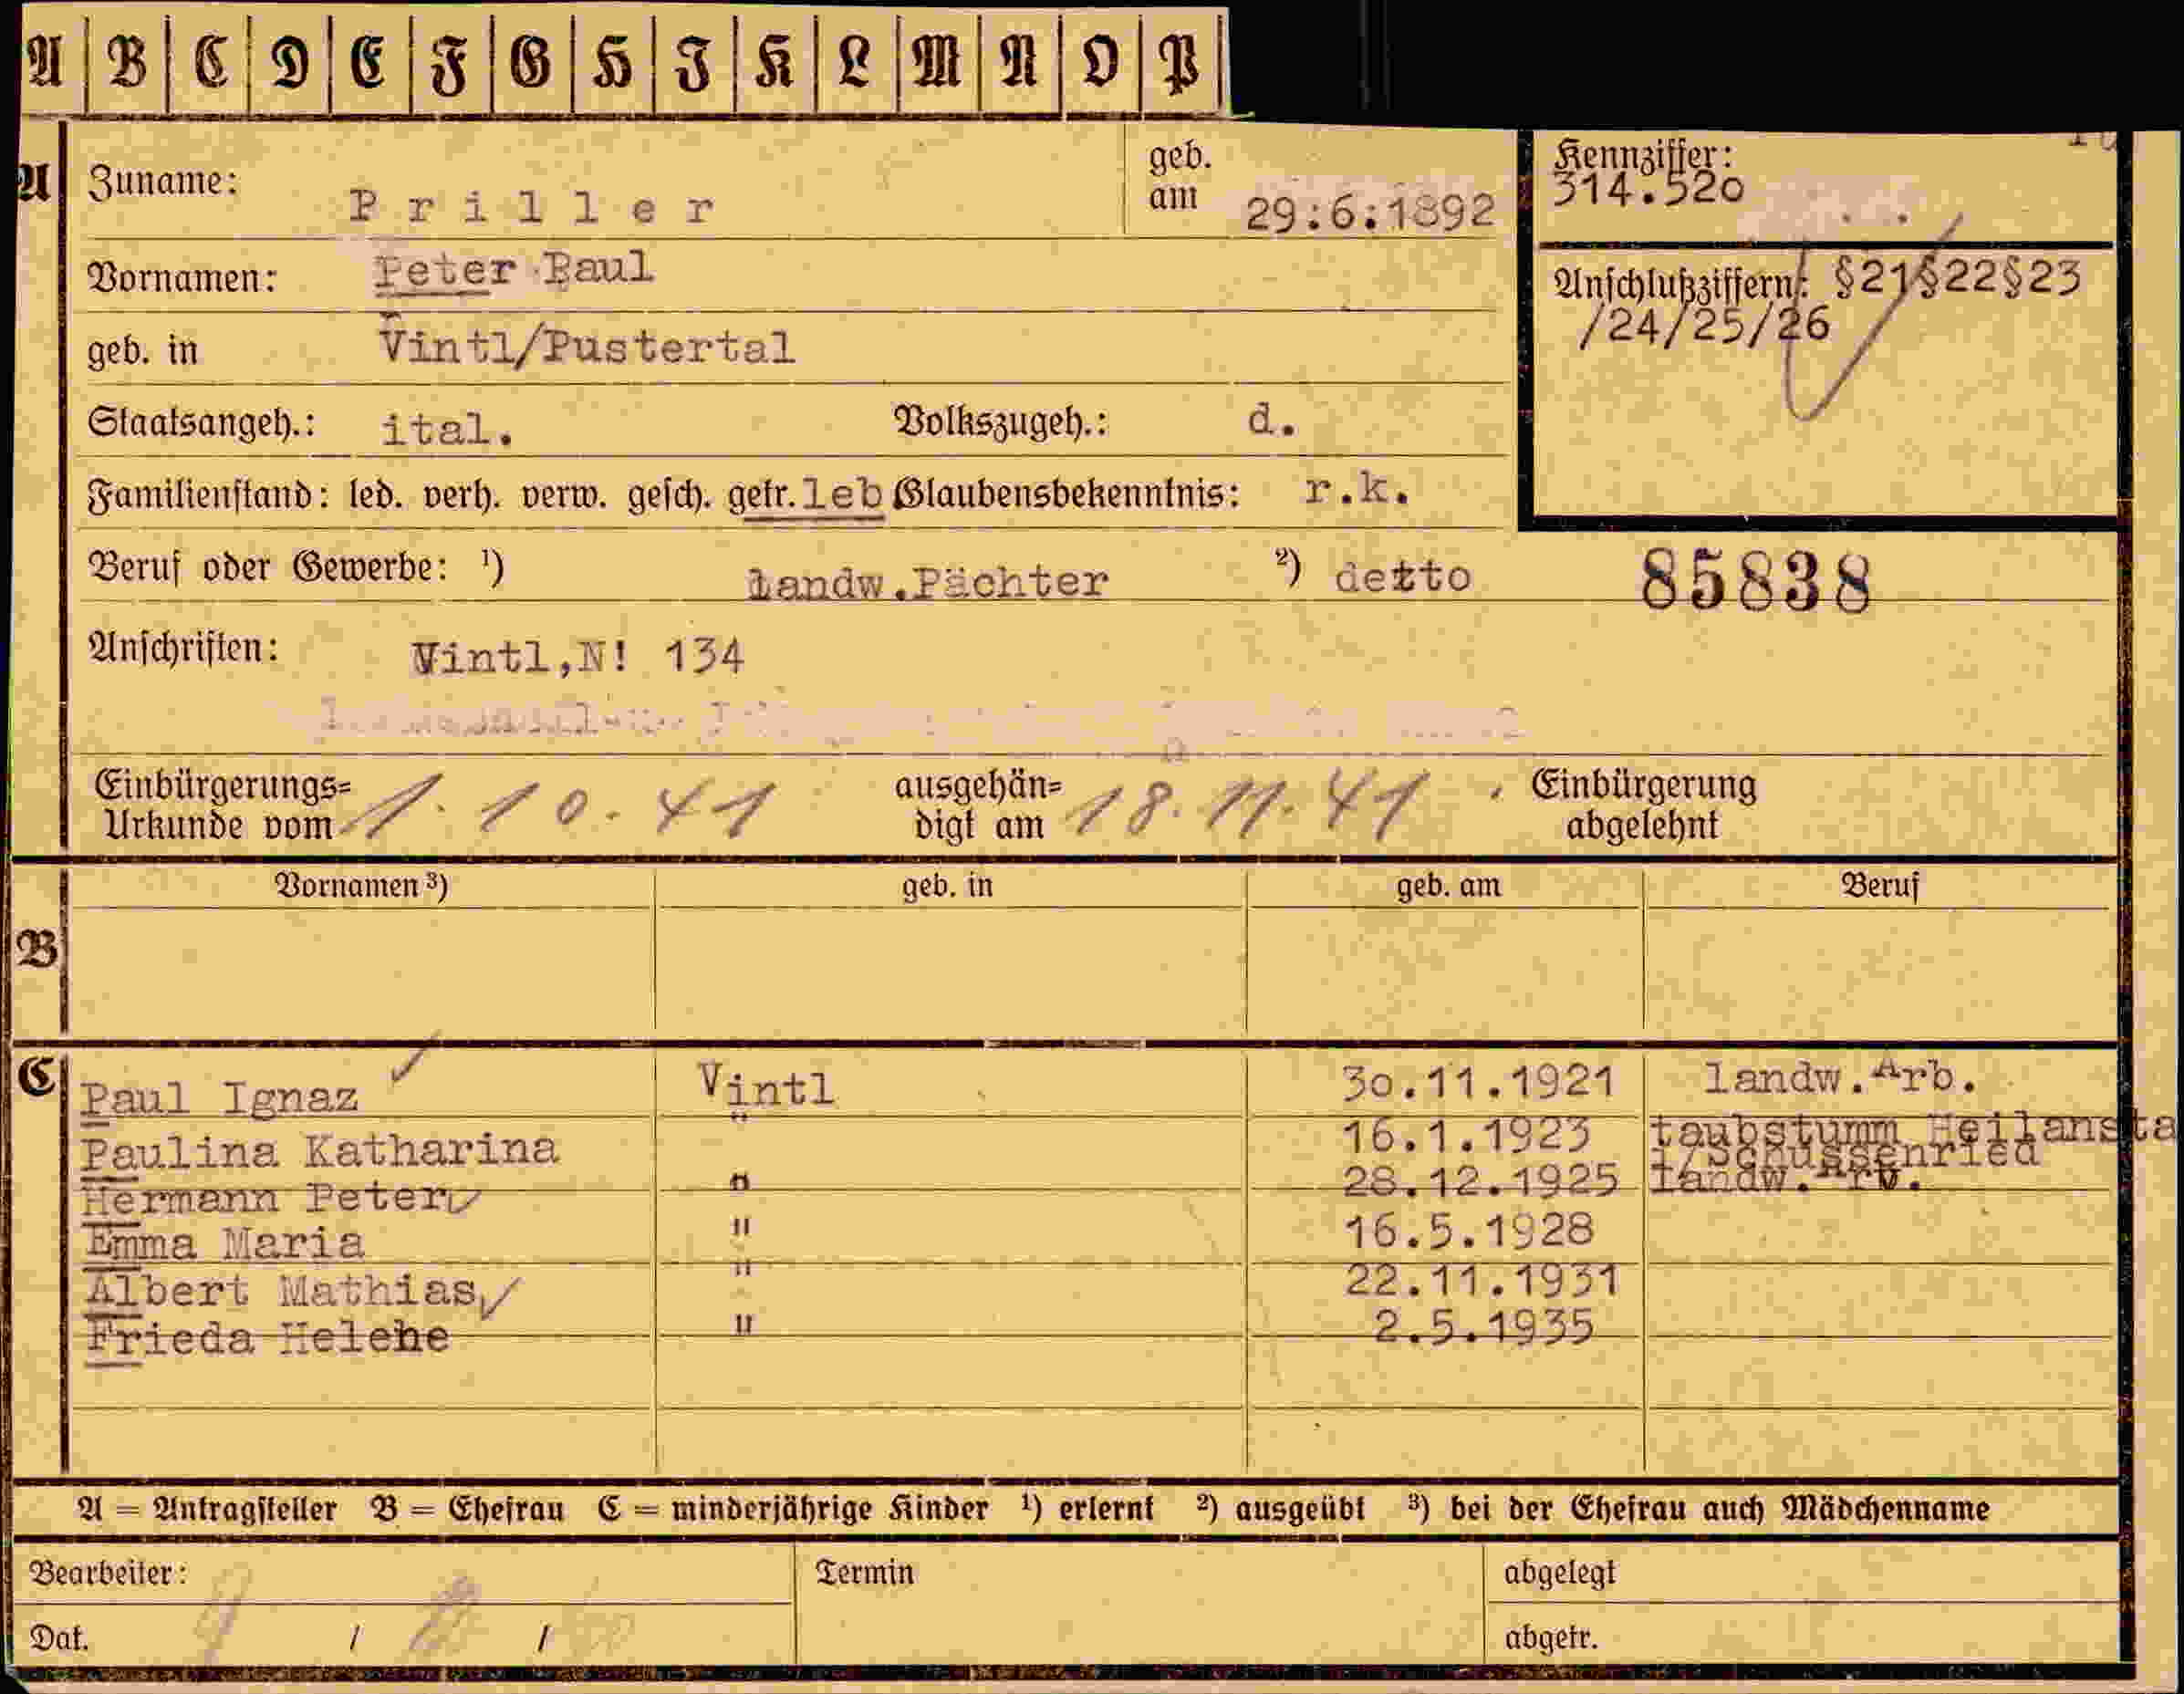 A B C D E F G H I K L M N O P
A Zuname: Priller geb. am 29:6:1892
Kennziffer: 314.520
Vornamen: Peter Paul
Anschlußziffern: §21§22§23
/24/25/26
geb. in Vintl/Pustertal
Staatsangeh.: ital. Volkszugeh.: d.
Familienstand: led. verh. verw. gesch. getr.leb Glaubensbekenntnis: r.k.
Beruf oder Gewerbe: ¹) landw.Pächter ²) detto 85838
Anschriften: Vintl,N! 134
Einbürgerungs= Urkunde vom 1.10.41 ausgehän= digt am 18.11.41 Einbürgerung abgelehnt
Vornamen ³) geb. in geb. am Beruf
B
C Paul Ignaz Vintl 30.11.1921 landw.Arb.
Paulina Katharina " 16.1.1923 taubstumm Heilansta
i/Schussenried
Hermann Peter " 28.12.1925 landw.Arb.
Emma Maria " 16.5.1928
Albert Mathias " 22.11.1931
Frieda Helene " 2.5.1935
A = Antragsteller B = Ehefrau C = minderjährige Kinder ¹) erlernt ²) ausgeübt ³) bei der Ehefrau auch Mädchenname
Bearbeiter: Termin abgelegt
Dat. / / abgetr.